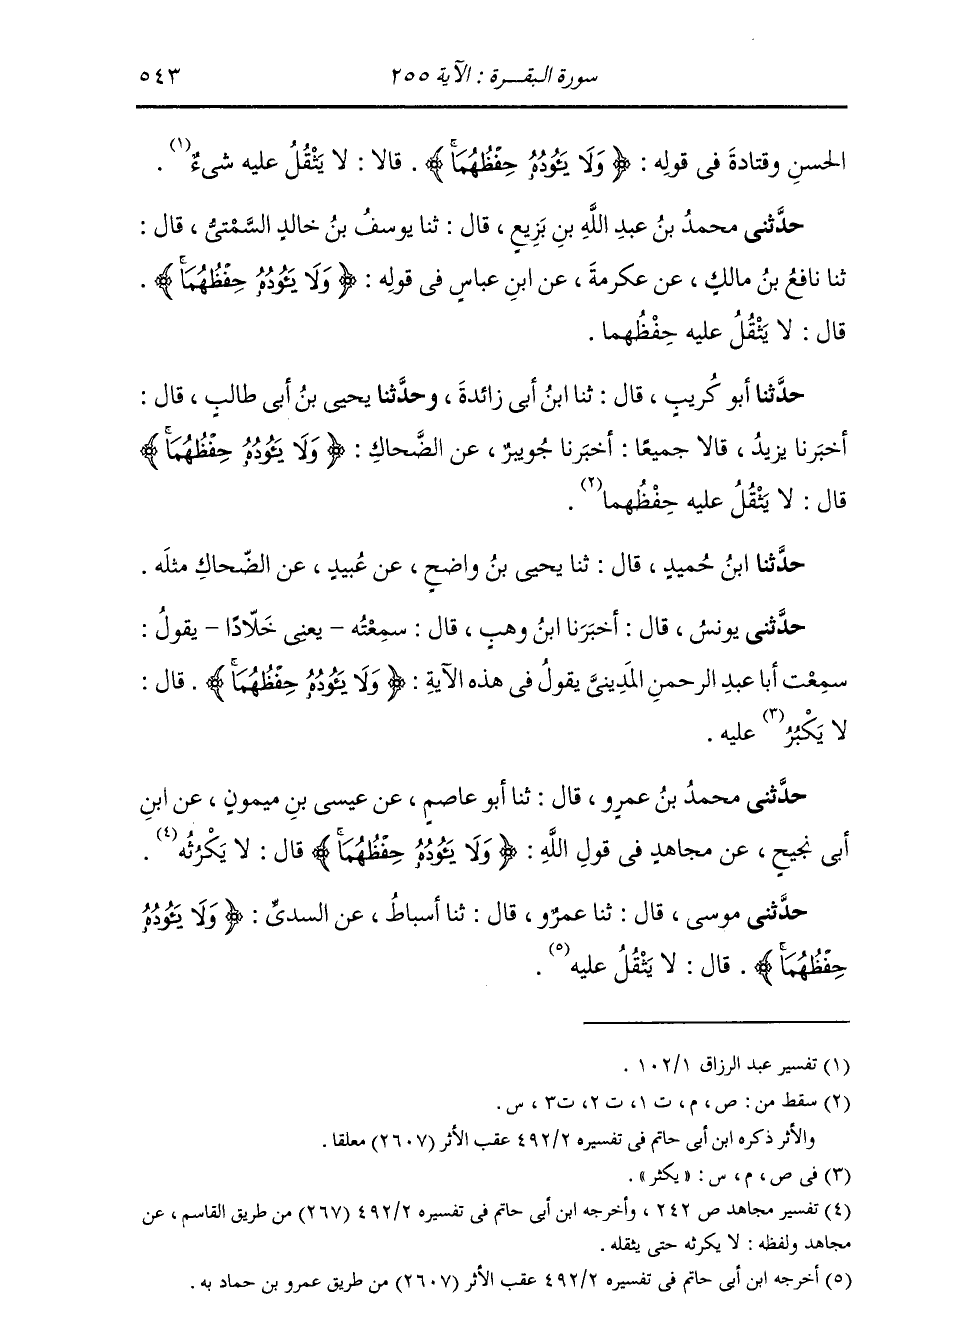 سورة البقرة : الآية ٢٥٥ ٥٤٣
الحسنِ وقتادةَ فى قولِه : ﴿ وَلَا يَـُٔودُهُۥ حِفْظُهُمَاۚ ﴾ . قالا : لا يَثْقُلُ عليه شىءٌ(١) .
حدَّثنى محمدُ بنُ عبدِ اللَّهِ بنِ بَزِيعٍ ، قال : ثنا يوسفُ بنُ خالدٍ السَّمْتىُّ ، قال :
ثنا نافعُ بنُ مالكٍ ، عن عكرمةَ ، عن ابنِ عباسٍ فى قولِه : ﴿ وَلَا يَـُٔودُهُۥ حِفْظُهُمَاۚ ﴾ .
قال : لا يَثْقُلُ عليه حِفْظُهما .
حدَّثنا أبو كُريبٍ ، قال : ثنا ابنُ أبى زائدةَ ، وحدَّثنا يحيى بنُ أبى طالبٍ ، قال :
أخبَرنا يزيدُ ، قالا جميعًا : أخبَرنا جُويبرٌ ، عن الضَّحاكِ : ﴿ وَلَا يَـُٔودُهُۥ حِفْظُهُمَاۚ ﴾
قال : لا يَثْقُلُ عليه حِفْظُهما(٢) .
حدَّثنا ابنُ حُميدٍ ، قال : ثنا يحيى بنُ واضحٍ ، عن عُبيدٍ ، عن الضّحاكِ مثلَه .
حدَّثنى يونسُ ، قال : أخبَرَنا ابنُ وهبٍ ، قال : سمِعْتُه – يعنى خَلّادًا – يقولُ :
سمِعْت أبا عبدِ الرحمنِ المَدِينىَّ يقولُ فى هذه الآيةِ : ﴿ وَلَا يَـُٔودُهُۥ حِفْظُهُمَاۚ ﴾ . قال :
لا يَكْبُرُ(٣) عليه .
حدَّثنى محمدُ بنُ عمرٍو ، قال : ثنا أبو عاصمٍ ، عن عيسى بنِ ميمونٍ ، عن ابنِ
أبى نجيحٍ ، عن مجاهدٍ فى قولِ اللَّهِ : ﴿ وَلَا يَـُٔودُهُۥ حِفْظُهُمَاۚ ﴾ قال : لا يَكْرُثُه(٤) .
حدَّثنى موسى ، قال : ثنا عمرٌو ، قال : ثنا أسباطُ ، عن السدىِّ : ﴿ وَلَا يَـُٔودُهُۥ
حِفْظُهُمَاۚ ﴾ . قال : لا يَثْقُلُ عليه(٥) .
(١) تفسير عبد الرزاق ١٠٢/١ .
(٢) سقط من : ص ، م ، ت ١، ت ٢، ت٣ ، س .
والأثر ذكره ابن أبى حاتم فى تفسيره ٤٩٢/٢ عقب الأثر (٢٦٠٧) معلقا .
(٣) فى ص ، م ، س : « يكثر » .
(٤) تفسير مجاهد ص ٢٤٢ ، وأخرجه ابن أبى حاتم فى تفسيره ٤٩٢/٢ (٢٦٧) من طريق القاسم ، عن
مجاهد ولفظه : لا يكرثه حتى يثقله .
(٥) أخرجه ابن أبى حاتم فى تفسيره ٤٩٢/٢ عقب الأثر (٢٦٠٧) من طريق عمرو بن حماد به .